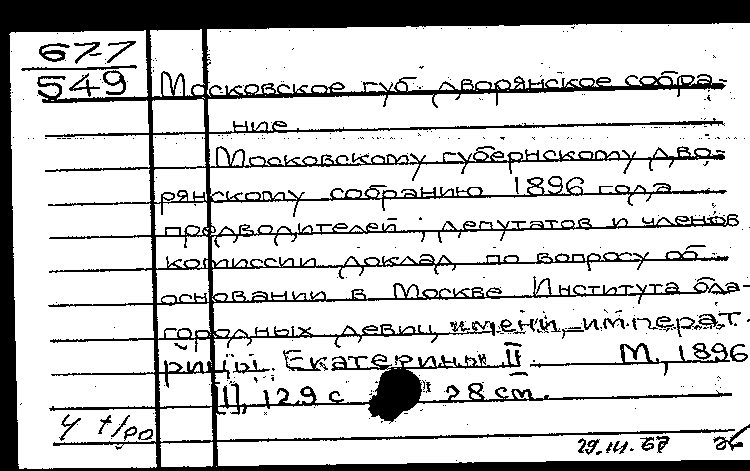 677
549
Московское губ. дворянское собра-
ние.
Московскому губернскому дво-
рянскому собранию 1896 года
предводителей, депутатов и членов
комиссии доклад по вопросу об
основании в Москве Института бла-
городных девиц имени императ-
рицы Екатерины II. М., 1896
[1], 129 с 28 см.
29.III.67